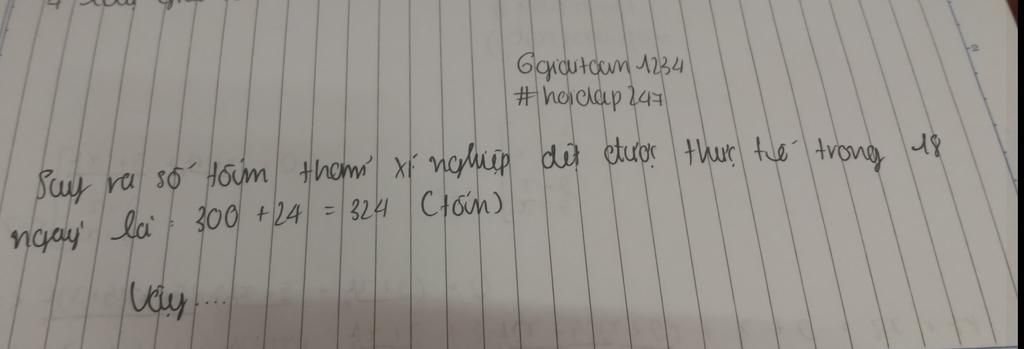 Ggiautoan1234
#hoidap247
Suy ra số tấm thảm xí nghiệp dệt được thực tế trong 18
ngày là : 300 + 24 = 324 (tấn)
Vậy....